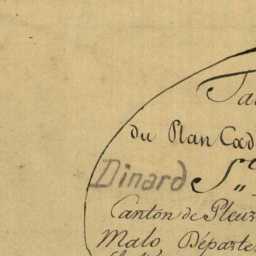 Ta
du Plan Cad
Dinard St
Canton de Pleur
Malo, Départe